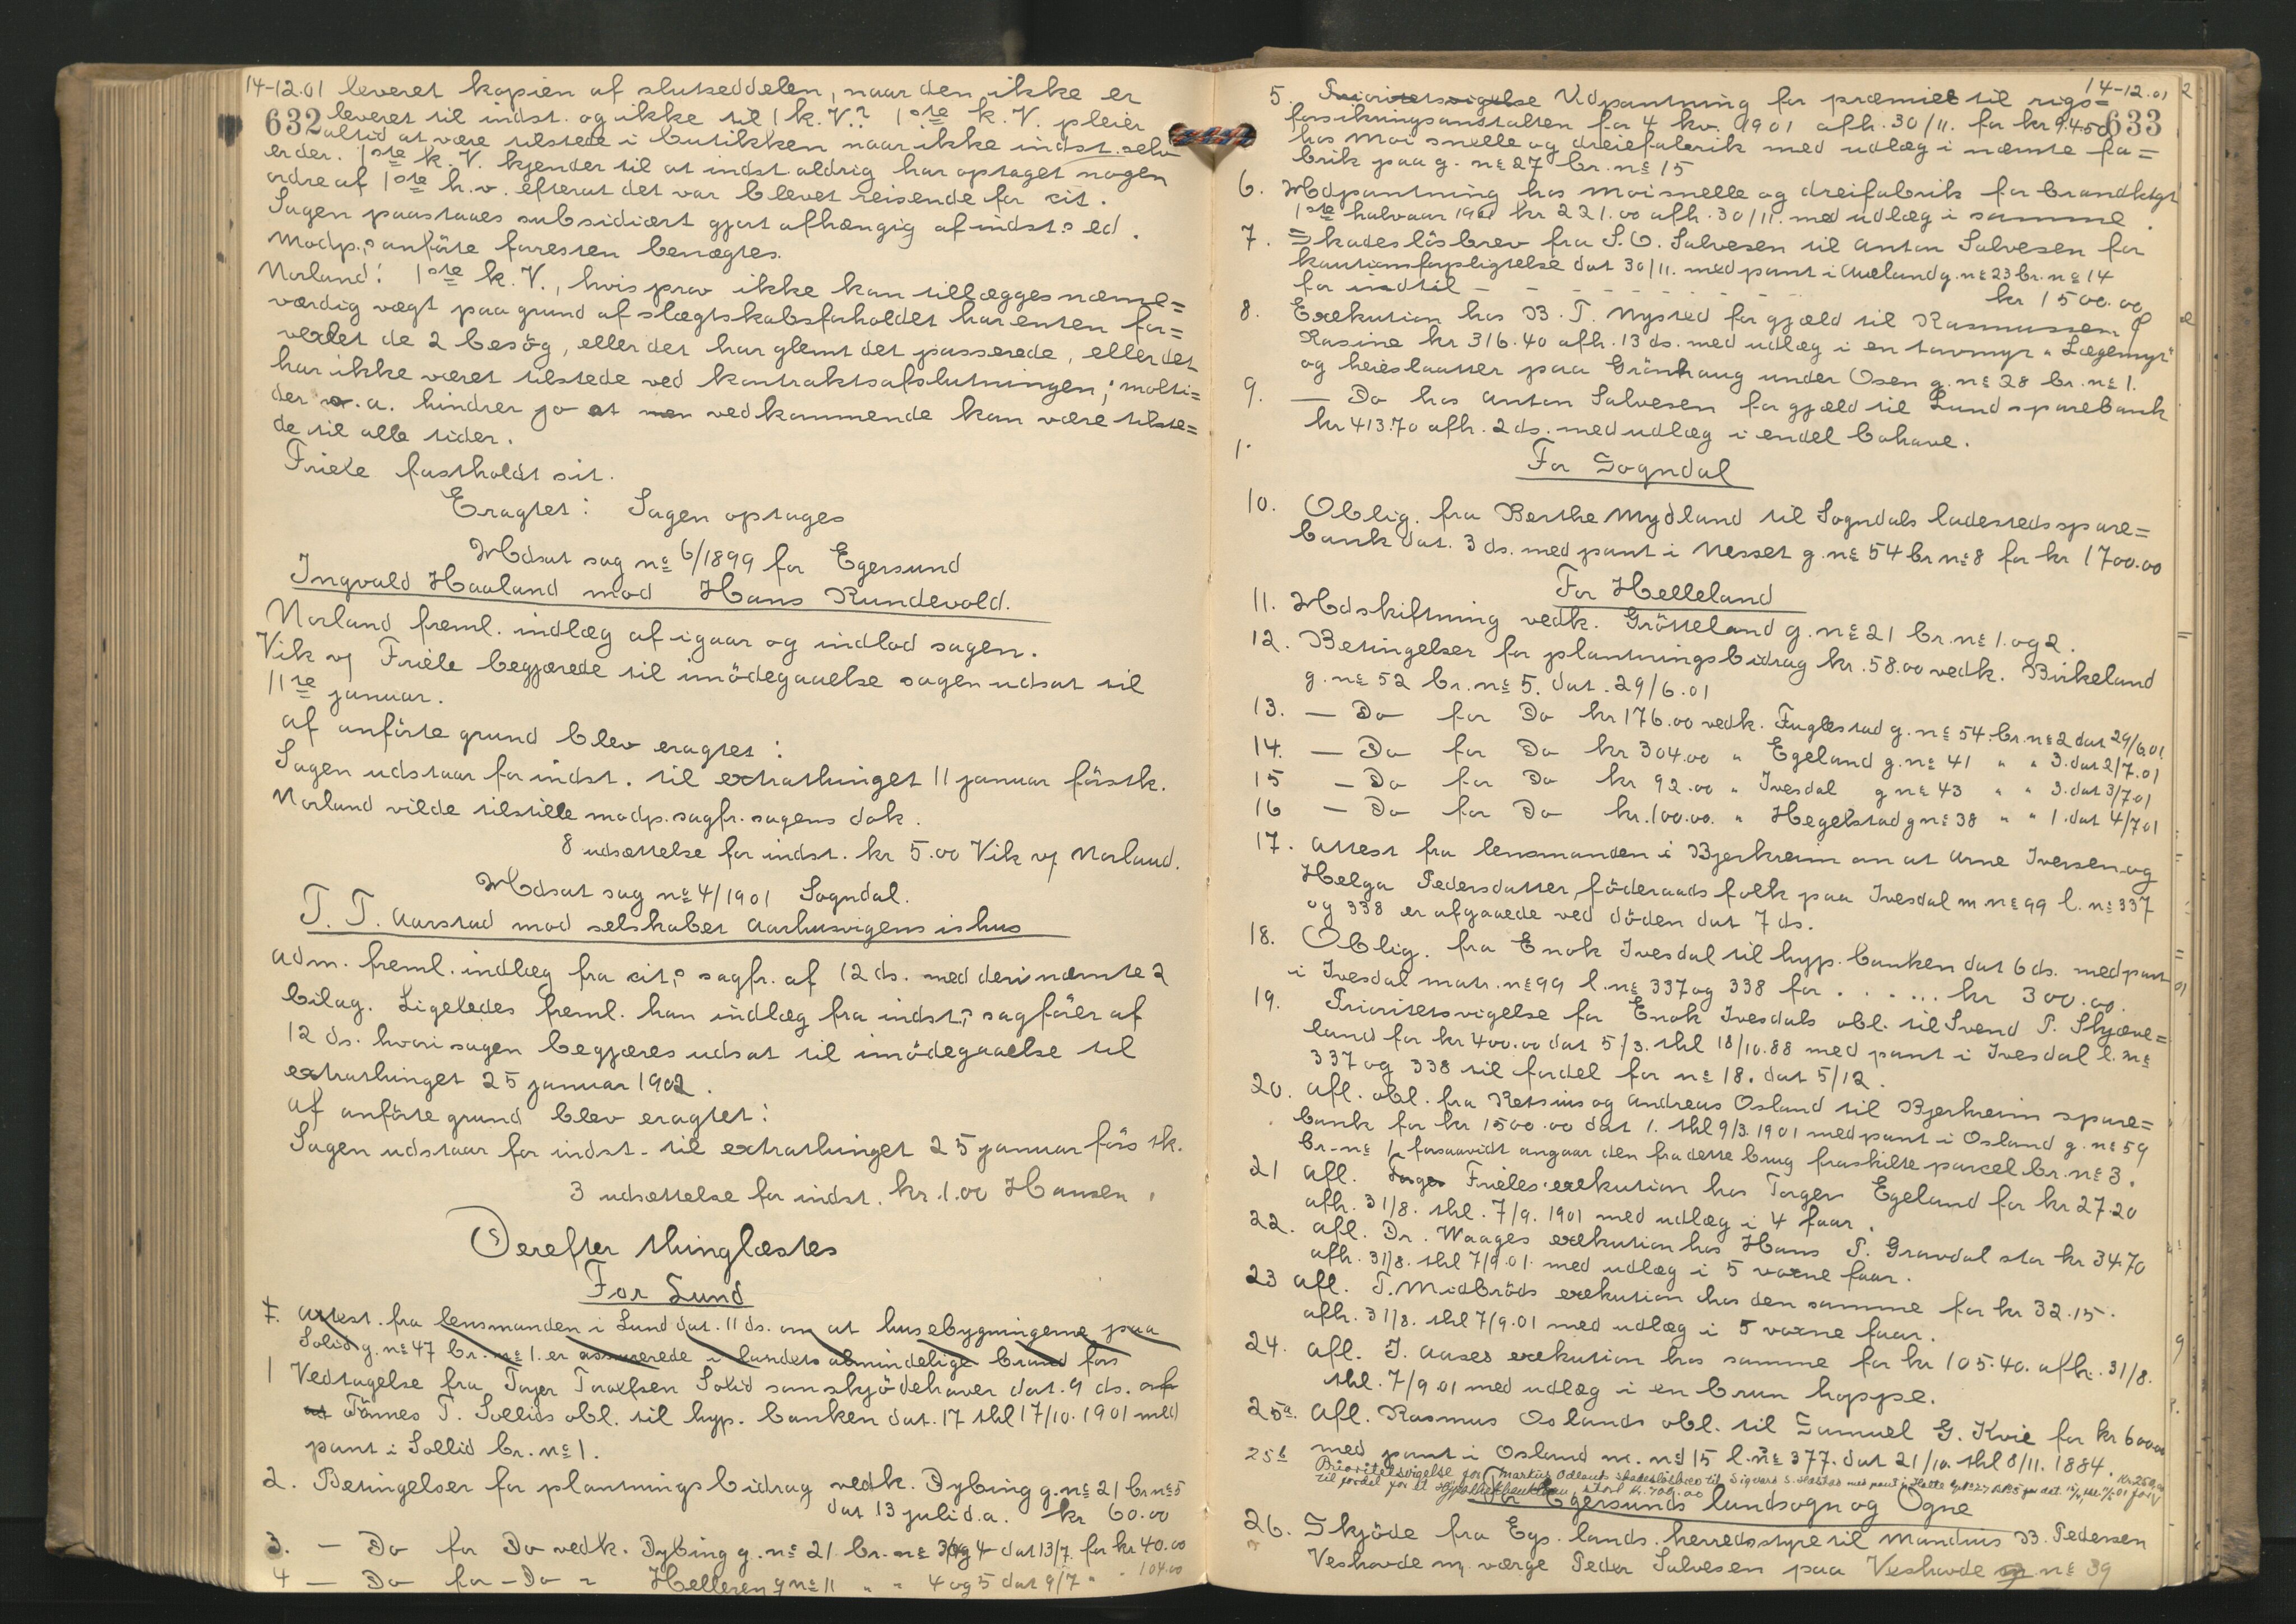 14-12.01 leveret kopien af slutseddelen, naar den ikke er
632 leveret til indst. og ikke til 1 k. V.? 1ste k. V. pleier
altid at være tilstede i butikken naar ikke indst. selv
er der. 1ste k. V. kjender til at indst. aldrig har optaget nogen
ordre af 1ste h.v. efterat det var blevet reisende for cit.
Sagen paastaaes subsidiært gjort afhængig af indst.s ed.
Modp.s anførte foresten benægtes.
Norland: 1ste k. V., hvis prov ikke kan tillægges næme=
værdig vægt paa grund af slægtskabsforholdet har enten for=
vexlet de 2 besøg, eller det har glemt det passerede, eller det
har ikke været tilstede ved kontraktsafslutningen; molti=
der o.a. hindrer jo at men vedkommende kan være tilste=
de til alle tider.
Friele fastholdt sit.
Eragtet: Sagen optages
Udsat sag nº 6/1899 for Egersund
Ingvald Haaland mod Hans Rundevold.
Norland freml. indlæg af igaar og indlod sagen.
Vik v/ Friele begjærede til imødegaaelse sagen udsat til
11te januar.
Af anførte grund blev eragtet:
Sagen udstaar for indst. til extrathinget 11 januar førstk.
Norland vilde tilstille modp. sagfr. sagens dok.
8 udsættelse for indst. kr 5.00 Vik v/ Norland.
Udsat sag nº 4/1901 Sogndal.
T. T. Aarstad mod selskabet Aarhusvigens ishus
Adm. freml. indlæg fra cit.s sagfr. af 12 ds. med deri nævnte 2
bilag. Ligeledes freml. han indlæg fra indst.s sagfører af
12 ds. hvori sagen begjæres udsat til imødegaaelse til
extrathinget 25 januar 1902.
Af anførte grund blev eragtet:
Sagen udstaar for indst. til extrathinget 25 januar førstk.
3 udsættelse for indst. kr. 1.00 Hansen.
Derefter thinglæstes
For Lund
1. Attest. fra lensmanden i Lund dat. 11 ds. om at husebygningerne paa
Solid g. nº 47 br. nº 1. er assurerede i landets almindelige brand fors
1 Vedtagelse fra Torger Toralfsen Solid som skjødehaver dat. 9 ds. af
at Tønnes T. Sollids obl. til hyp. banken dat. 17 thl 17/10. 1901 med
pant i Sollid br. nº 1.
2. Betingelser for plantningsbidrag vedk. Dybing g. nº 21 br nº 5
dat 13 juli d.a. kr 60.00
3. — Do for Do vedk. Dybing g. nº 21 br. nº 3 og 4 dat 13/7 for kr 40.00
4 — Do for — Do " Helleren g nº 11 " " 4 og 5 dat 9/7 " " 104.00
14-12.01
633
5. Prioritetsvigelse Udpantning for præmier til rigs=
forsikringsanstalten for 4 kv. 1901 afh. 30/11. for kr 9.45
hos Moi snelle og dreiefabrik med udlæg i nævnte fa=
brik paa g. nº 27 br. nº 15
6. Udpantning hos Moi snelle og dreifabrik for brandktgt
1ste halvaar 1901 kr 221.00 afh. 30/11. med udlæg i samme.
7. Skadesløsbrev fra S. O. Salvesen til Anton Salvesen for
kautionsforpligtelse dat 30/11. med pant i Aueland g. nº 23 br. nº 14
for indtil - - - - - - - - - kr 1500.00
8. Exekution hos B. T. Nysted for gjæld til Rasmussen &
Rasine kr 316.40 afh. 13 ds. med udlæg i en torvmyr "Lægemyr"
og heieslaatter paa Grønhaug under Osen g. nº 28 br. nº 1.
9. — Do hos Anton Salvesen for gjæld til Lund sparebank
kr 413.70 afh. 2 ds. med udlæg i endel bohave.
For Sogndal
10. Oblig. fra Berthe Mydland til Sogndals ladesteds spare=
bank dat. 3 ds. med pant i Nesset g. nº 54 br nº 8 for kr 1700.00
For Helleland
11. Udskiftning vedk. Grøtteland g. nº 21 br. nº 1. og 2.
12. Betingelser for plantningsbidrag kr. 58.00 vedk. Birkeland
g. nº 52 br. nº 5. dat. 29/6.01
13. — Do for Do kr 176.00 vedk. Fuglestad g. nº 54 br. nº 2 dat 29/6 01
14. — Do for Do kr 304.00 " Egeland g. nº 41 " " 3. dat 2/7.01
15 — Do for Do kr 92.00 " Ivesdal g nº 43 " " 3. dat 3/7 01
16 — Do for Do kr. 100.00. " Hegelstad g nº 38 " " 1. dat 4/7 01
17. Attest fra lensmanden i Bjerkreim om at Arne Iversen og
Helga Pedersdatter, føderaads folk paa Ivesdal m nº 99 l. nº 337
og 338 er afgaaede ved døden dat 7 ds.
18. Oblig. fra Enok Ivesdal til hyp. banken dat 6 ds. med pant
i Ivesdal matr. nº 99 l. nº 337 og 338 for . . . . . . kr 300.00.
19. Prioritetsvigelse for Enok Ivesdals obl. til Svend P. Skjæve=
land for kr 400.00 dat 5/3. thl 18/10.88 med pant i Ivesdal l. nº
337 og 338 til fordel for nº 18. dat 5/12.
20. Afl. obl. fra Retsius og Andreas Osland til Bjerkreim spare=
bank for kr 1500.00 dat 1. thl 9/3. 1901 med pant i Osland g. nº 59
br. nº 1, forsaavidt angaar den fra dette brug fraskilte parcel br. nº 3.
21 Afl. Torger Frieles exekution hos Torger Egeland for kr 27.20
afh. 31/8. thl. 7/9. 1901 med udlæg i 4 faar.
22. Afl. Dr. Waages exekution hos Hans P. Gravdal stor kr 34.70
afh. 31/8. thl 7/9.01. med udlæg i 5 voxne faar.
23 Afl. T. Midbrøds exekution hos den samme for kr 32.15.
afh. 31/8. thl 7/9.01 med udlæg i 5 voxne faar.
24. Afl. J. Aases exekution hos samme for kr 105.40. afh. 31/8.
thl. 7/9 01 med udlæg i en brun hoppe.
25a. Afl. Rasmus Oslands obl. til Samuel G. Kvie for kr 600.00
med pant i Osland m. nº 115 l. nº 377. dat 21/10. thl 8/11. 1884.
25b Prioritetsvigelse for Martin Odlands skadesløsbrev til Sigvard S. med pant i
til fordel for et til hypothekbanken, stort kr. 700.00
For Egersunds landsogn og Ogne
26. Skjøde fra Egs. lands. herredsstyre til Mandius B. Pedersen
Veshovde m. værge Peder Salvesen paa Veshovde g. nº 39